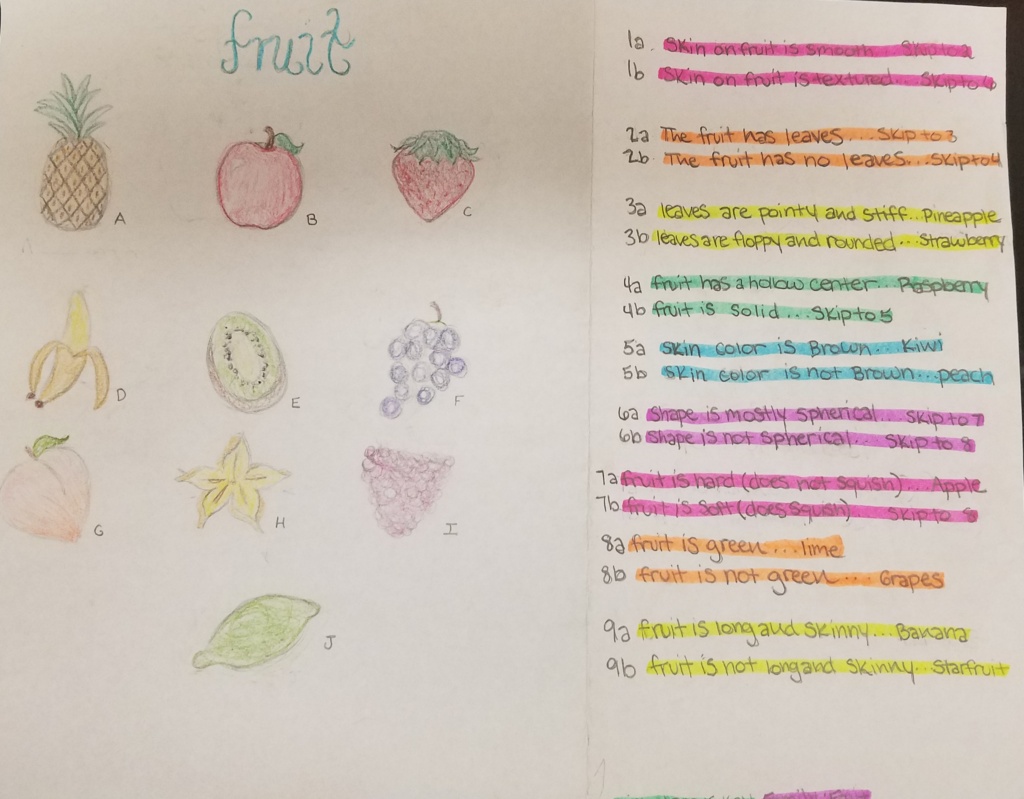 fruit
A
B
C
D
E
F
G
H
I
J
1a. Skin on fruit is smooth... Skip to 2
1b Skin on fruit is textured... Skip to 6
2a The fruit has leaves.... Skip to 3
2b. The fruit has no leaves...Skip to 4
3a leaves are pointy and stiff...Pineapple
3b leaves are floppy and rounded...Strawberry
4a fruit has a hollow center...Raspberry
4b fruit is solid....Skip to 5
5a Skin color is Brown... Kiwi
5b Skin color is not Brown...peach
6a Shape is mostly spherical... Skip to 7
6b Shape is not spherical... Skip to 8
7a fruit is hard (does not squish)... Apple
7b fruit is soft (does squish)... Skip to 8
8a fruit is green...lime
8b fruit is not green... Grapes
9a fruit is long and skinny...Banana
9b fruit is not long and skinny...Starfruit